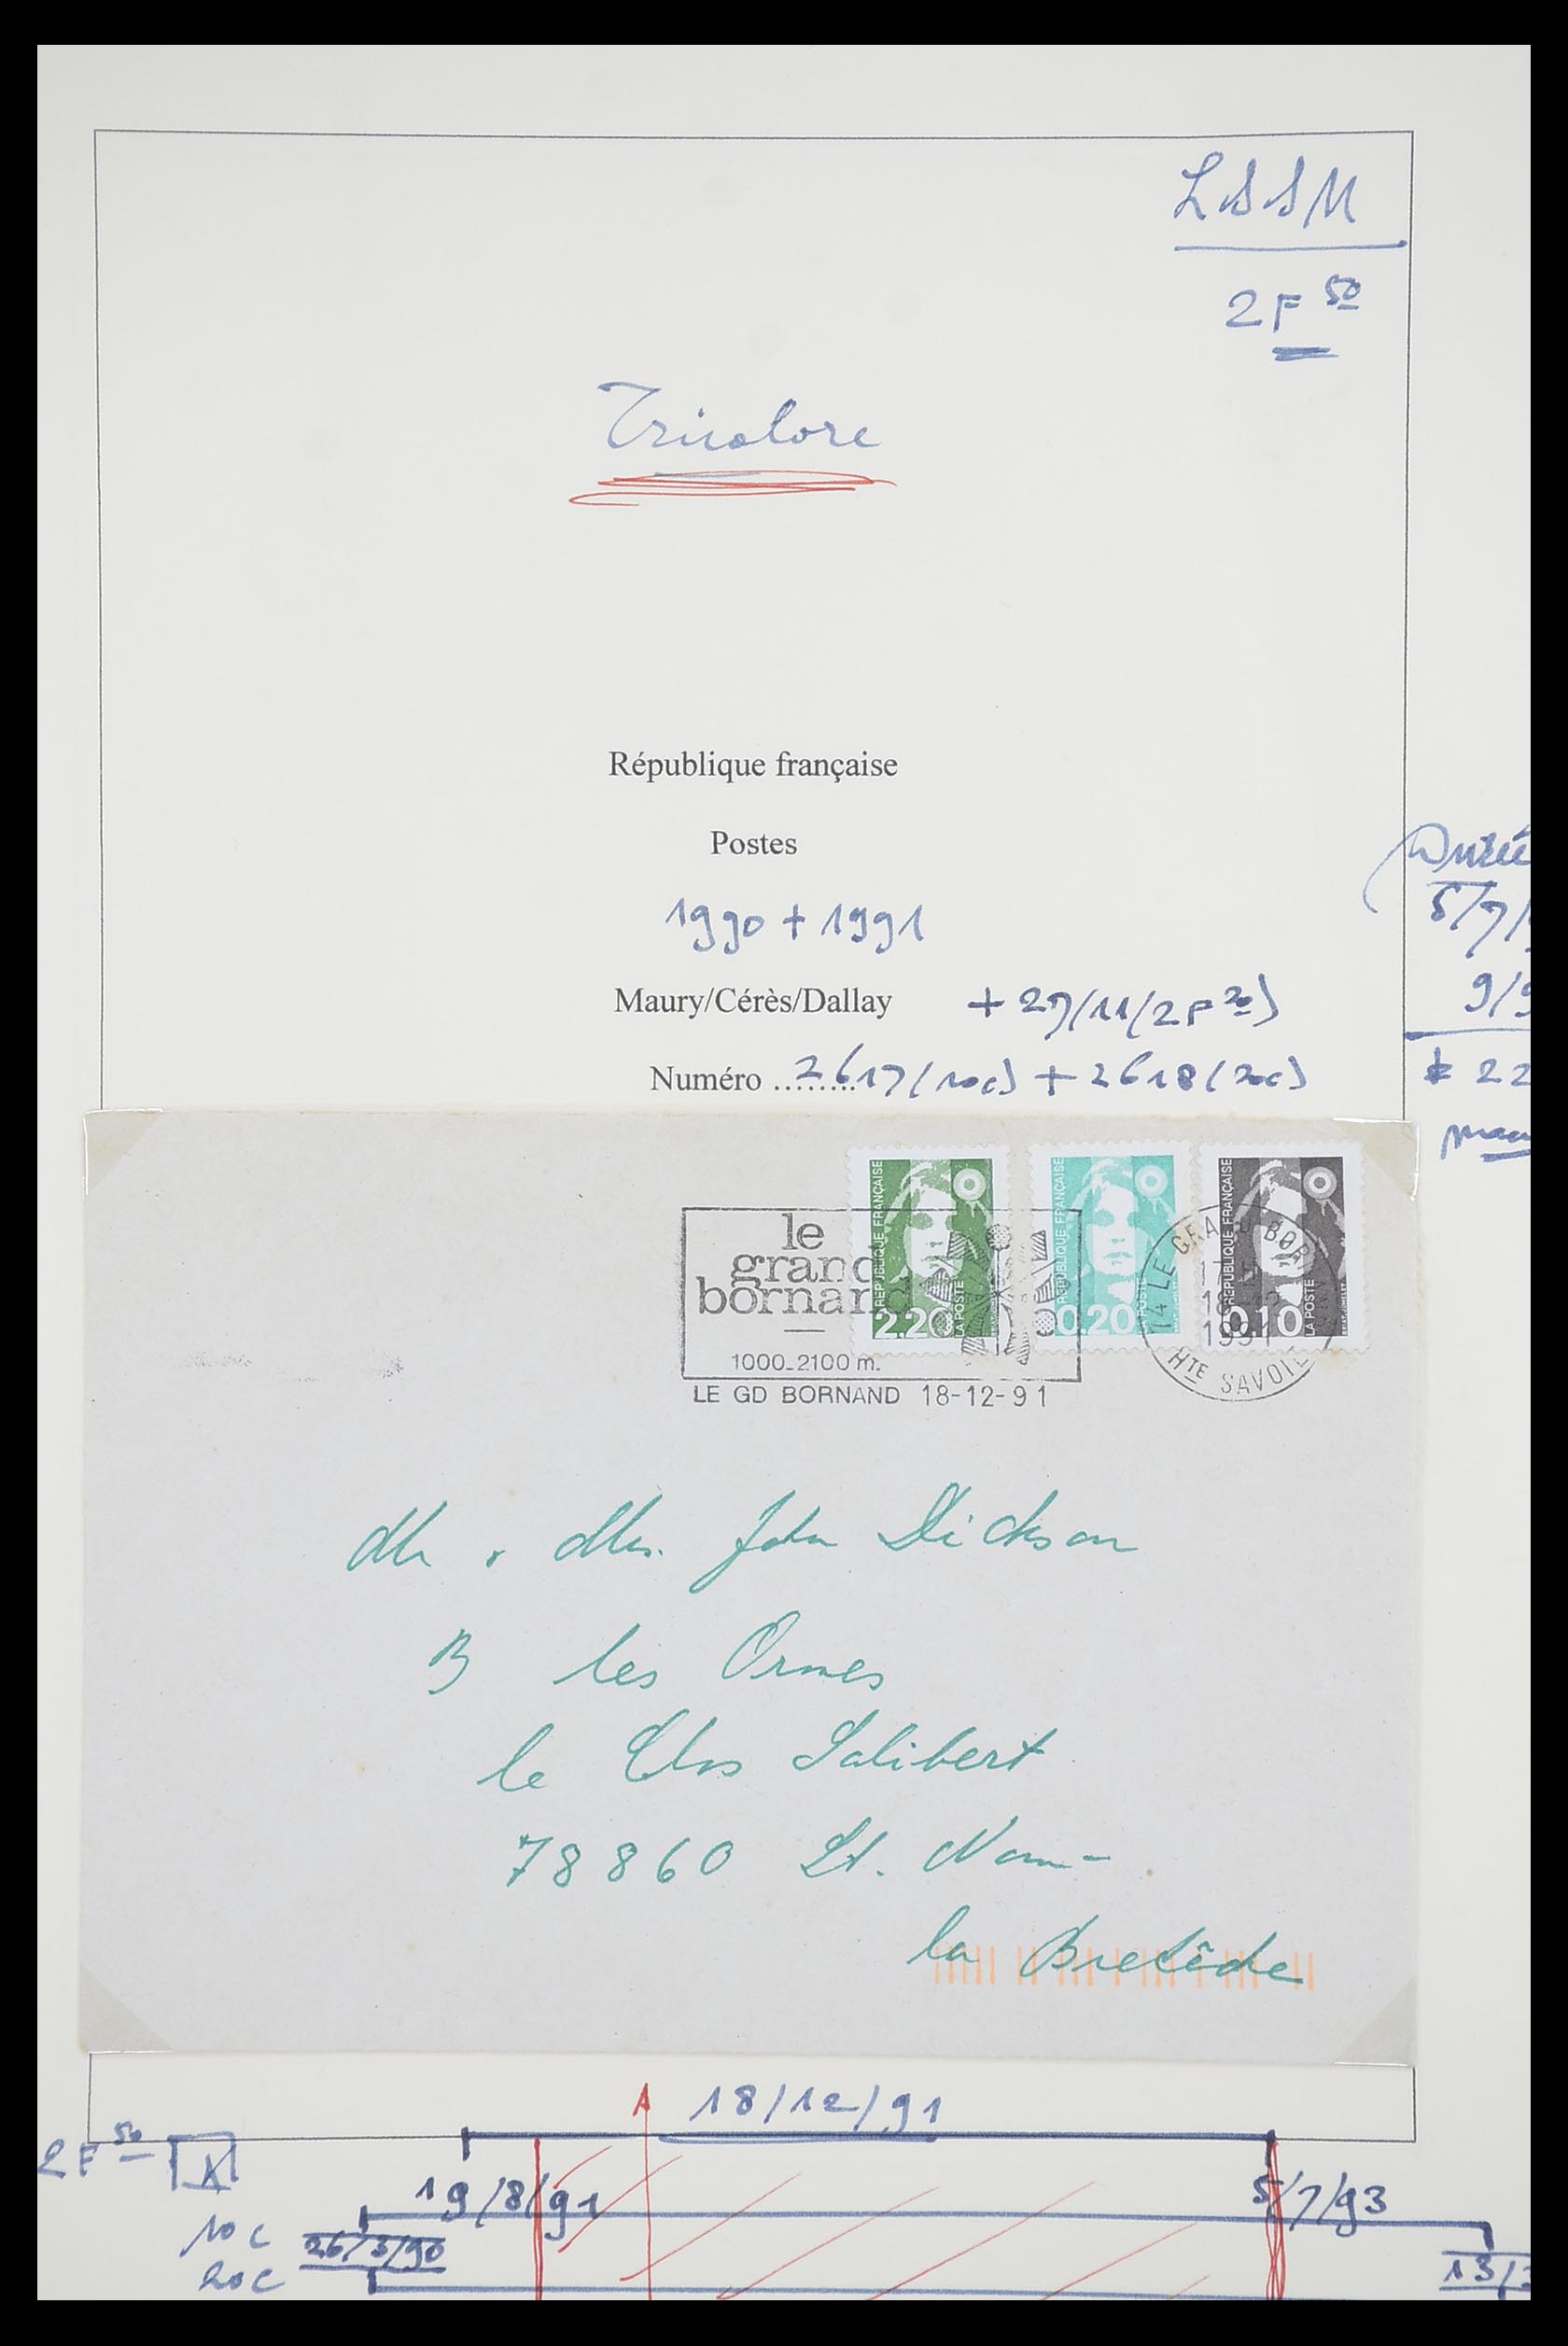 LSSM
2F 50
Tricolore
République française
Postes
1990 + 1991
Maury/Cérès/Dallay + 27/11/2F 20)
Numéro ........ 2617 (10c) + 2618 (20c)
Durée
5/7/
9/9
22
RÉPUBLIQUE FRANÇAISE
2.20
LA POSTE
RÉPUBLIQUE FRANÇAISE
0.20
POSTE
RÉPUBLIQUE FRANÇAISE
0.10
LA POSTE
le
grand
bornand
1000-2100 m.
LE GD BORNAND 18-12-91
74 LE GRAND BOR
1991
HTE SAVOIE
Mr . Mrs. John Dickson
3 les Ormes
le Clos Salibert
78860 St. Nom-
la Bretêche
18/12/91
2F 50
A
19/8/91
5/7/93
10c
26/3/90
13/
20c